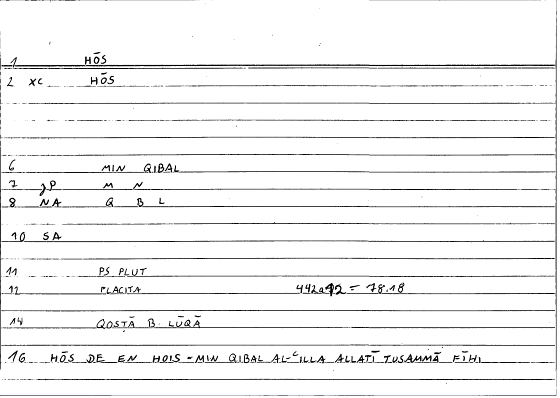 1 HŌS
2 XC HŌS
6 MIN QIBAL
7 JP M N
8 NA Q B L
10 SA
11 PS PLUT
12 PLACITA 442a12 = 78.18
14 QOSṬĀ B. LŪQĀ
16 HŌS DE EN HOIS - MIN QIBAL AL-ʿILLA ALLATĪ TUSAMMĀ FĪHI